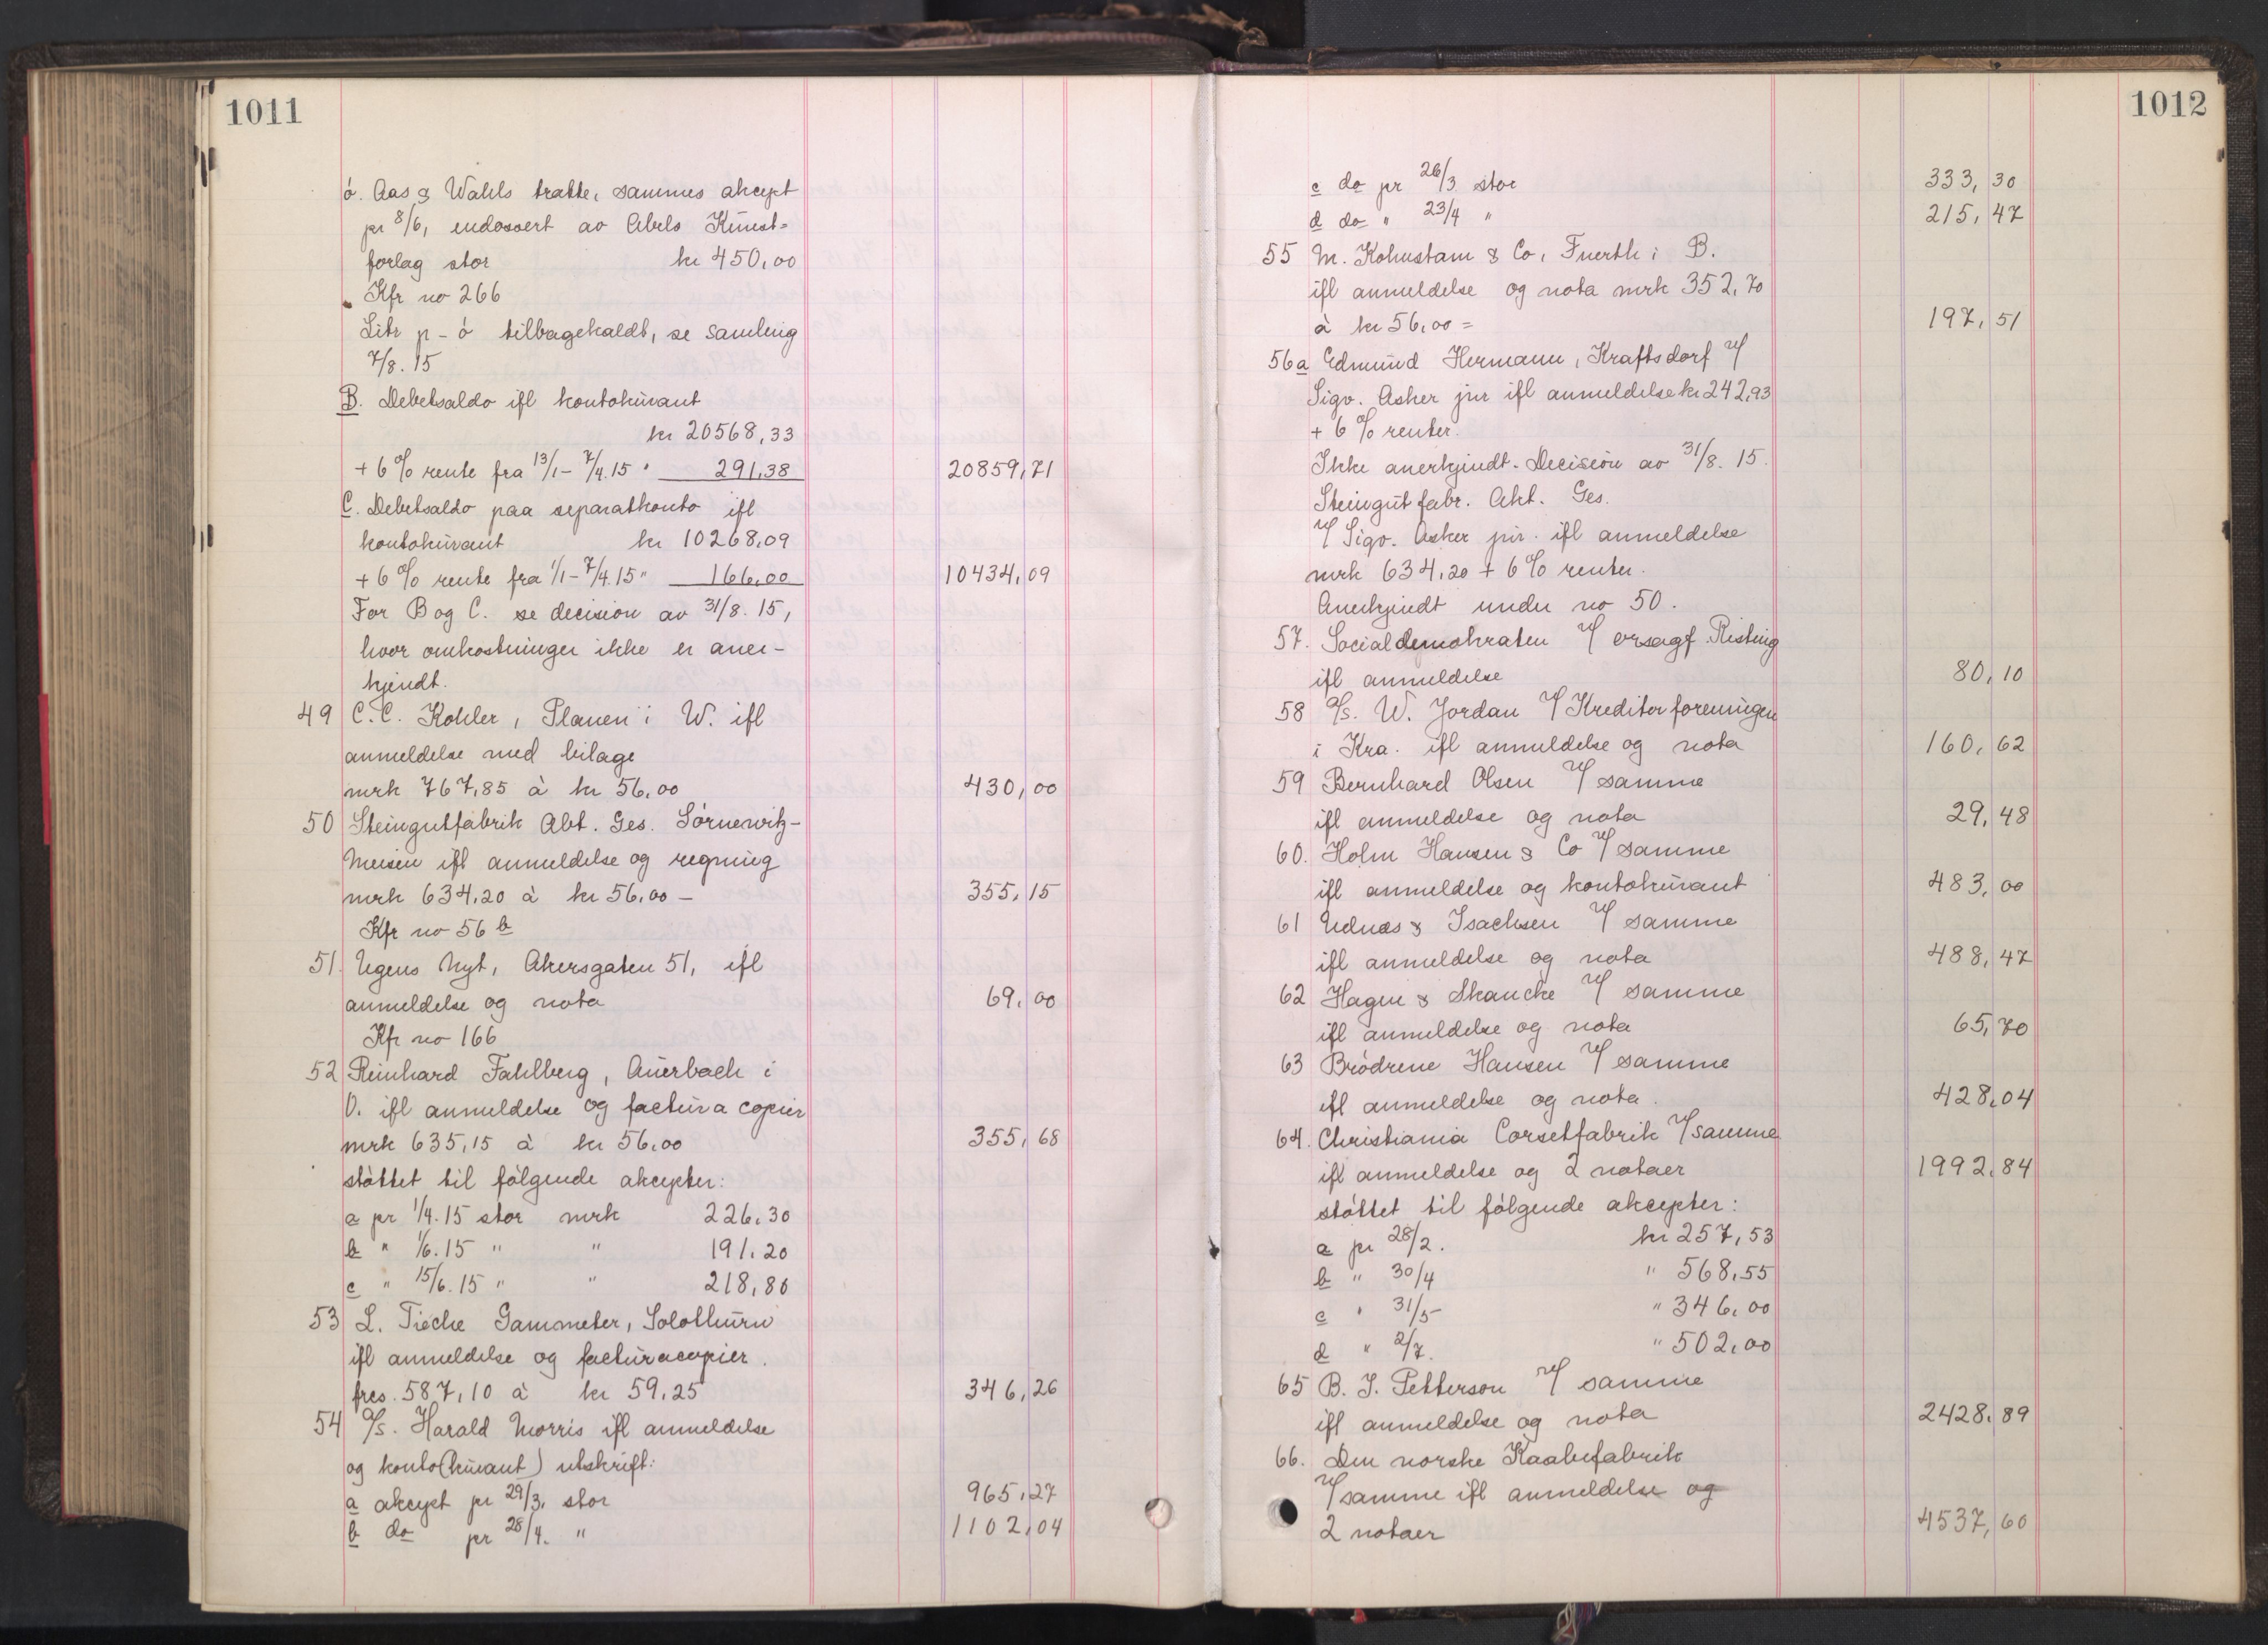 1011
ó. Aas & Wahls tratte, sammes akcept
pr 8/6, endossert av Abels Kunst=
forlag stor kr 450,00
Kfr no 266
Litr p - ó tilbagekaldt, se samling
7/8. 15
B. Debetsaldo ifl kontokurant
kr 20568,33
+ 6% rente fra 13/1 - 7/4.15 " 291,38 20859,71
C. Debetsaldo paa separatkonto ifl
kontokurant kr 10268,09
+ 6% rente fra 1/1 - 7/4.15 " 166,00 10434,09
For B og C. se decision av 31/8. 15,
hvor omkostninger ikke er aner-
kjendt.
49 C. C. Kohler, Planen i W. ifl
anmeldelse med bilage
mrk 767,85 à kr 56,00 430,00
50 Steingutfabrik Akt. Ges. Sörnewitz-
Meisen ifl anmeldelse og regning
mrk 634,20 à kr 56,00 - 355,15
Kfr no 56 b
51. Ugens Nyt, Akersgaten 51, ifl
anmeldelse og nota 69,00
Kfr no 166
52 Reinhard Fahlberg, Auerbach i
V. ifl anmeldelse og factura copier
mrk 635,15 à kr 56,00 355,68
støttet til følgende akcepter:
a pr 1/4.15 stor mrk 226,30
b " 1/6.15 " " 191,20
c " 15/6.15 " " 218,80
53 L. Tieche Gammeter, Solothurn
ifl anmeldelse og facturacopier.
frcs. 587,10 à kr 59,25 346,26
54 A/S. Harald Morris ifl anmeldelse
og konto(kurant) utskrift:
a akcept pr 29/3, stor 965,27
b do pr 28/4. " 1102,04
1012
c do pr 26/3 stor 333,30
d do " 23/4 " 215,47
55 M. Kohnstam & Co, Fuerth i B.
ifl anmeldelse og nota mrk 352,70
à kr 56,00 = 197,51
56a Edmund Hermann, Kraftsdorf v/
Sigv. Asker jnr ifl anmeldelse kr 242,93
+ 6% renter.
Ikke anerkjendt. Decision av 31/8. 15.
Steingut fabr. Akt. Ges.
v/ Sigv. Asker jnr. ifl anmeldelse
mrk 634,20 + 6% renter.
Anerkjendt under no 50.
57. Socialdemokraten v/ orsagf. Risting
ifl anmeldelse 80,10
58 A/S. W. Jordan v/ Kreditorforeningen
i Kra. ifl anmeldelse og nota 160,62
59 Bernhard Olsen v/ samme
ifl anmeldelse og nota 29,48
60. Holm Hansen & Co v/ samme
ifl anmeldelse og kontokurant 483,00
61 Udnæs & Isachsen v/ samme
ifl anmeldelse og nota 488,47
62 Hagen & Skancke v/ samme
ifl anmeldelse og nota 65,70
63 Brødrene Hansen v/ samme
ifl anmeldelse og nota. 428,04
64. Christiania Corsetfabrik v/ samme
ifl anmeldelse og 2 notaer 1992,84
støttet til følgende akcepter:
a pr 28/2. kr 257,53
b " 30/4 " 568,55
c " 31/5 - " 346,00
d " 2/7. " 502,00
65 B. J. Petterson v/ samme
ifl anmeldelse og nota 2428,89
66. Den norske Kaabefabrik
v/ samme ifl anmeldelse og
2 notaer 4537,60